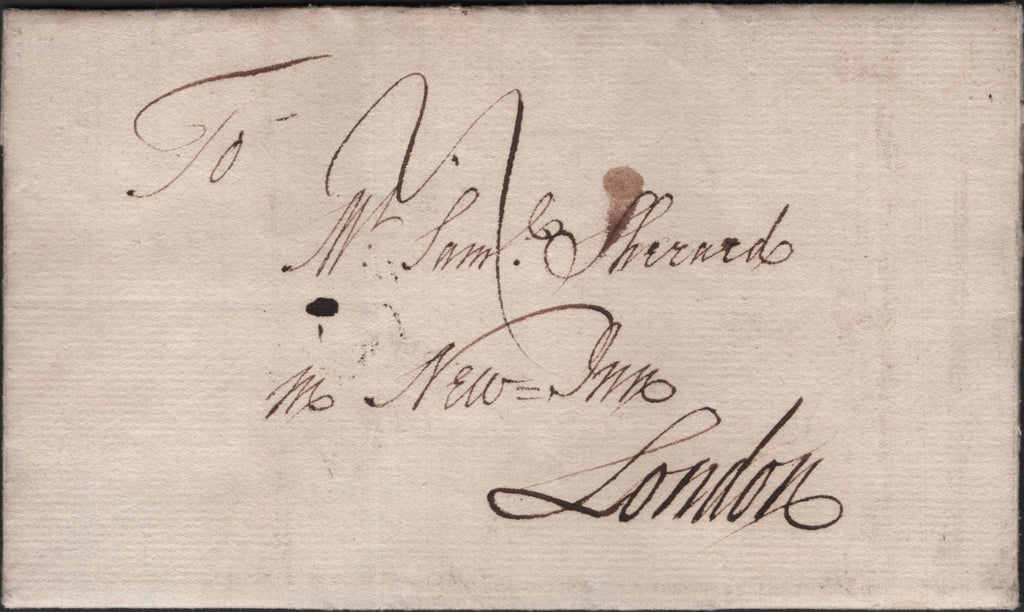 To
Mr. Saml. Sherard
in New=Inn
London